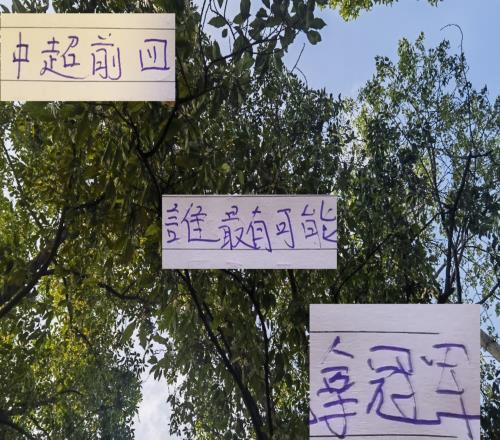 中超前四
誰最有可能
拿冠軍